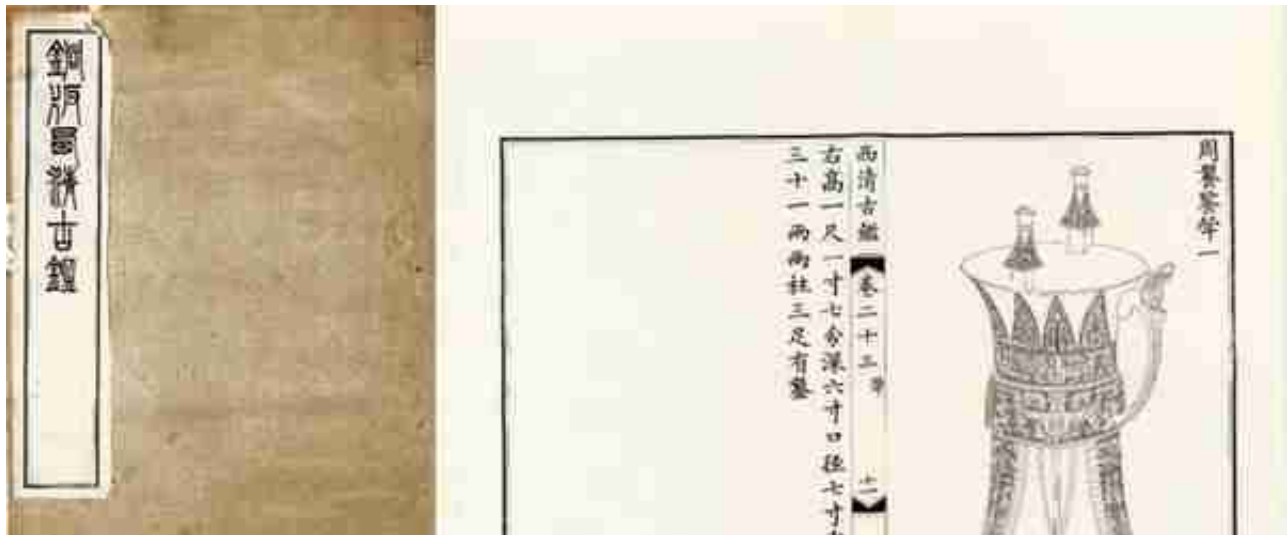 銅版西清古鑑
周饕餮斝一
西清古鑑
卷二十三 斝
十一
右高一尺一寸七分深六寸口徑七寸
三十一兩兩柱三足有鋬